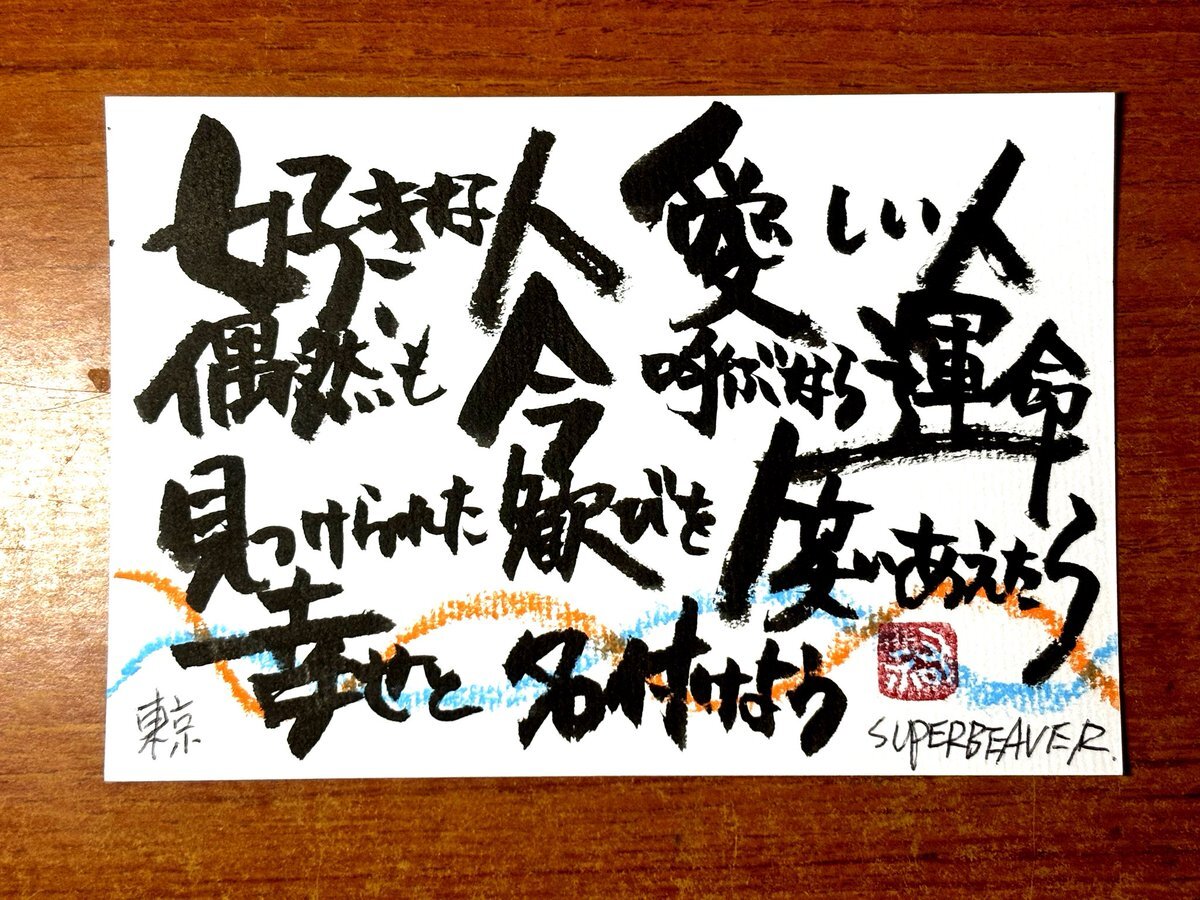 好きな人 愛しい人
偶然も今 呼ぶなら運命
見つけられた歓びを 笑いあえたら
幸せと 名付けよう
東京
SUPERBEAVER.